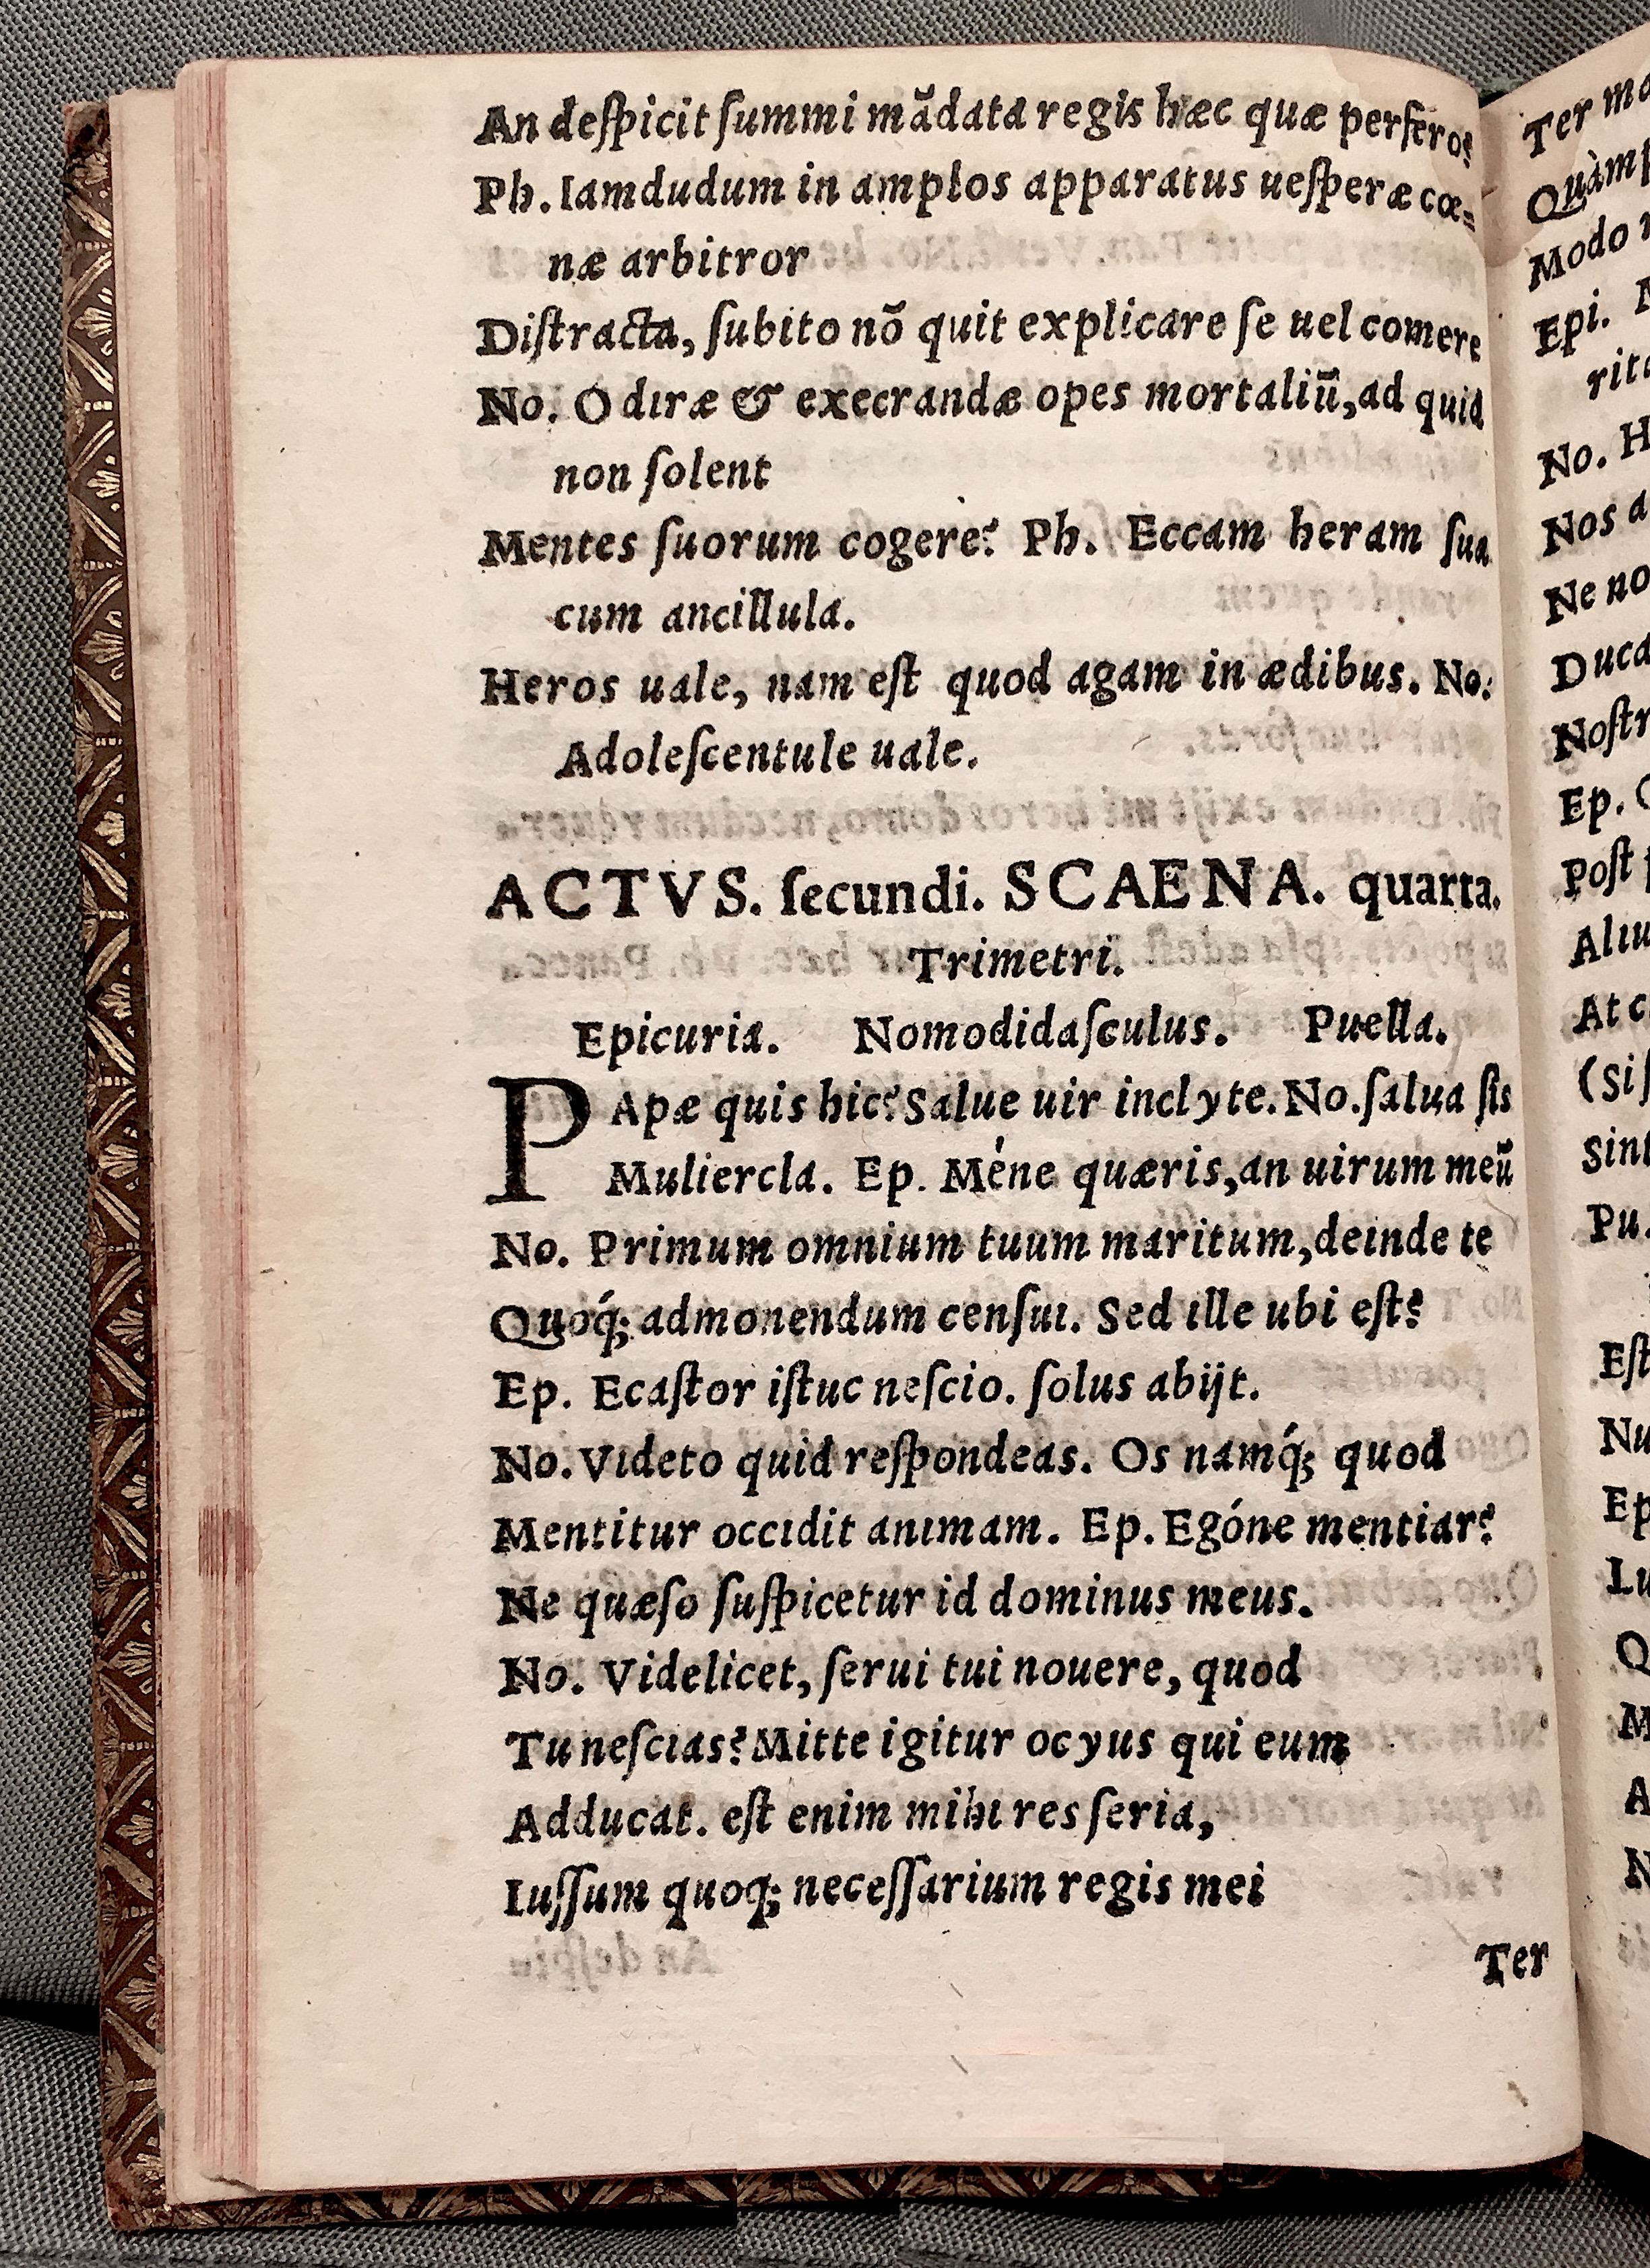 An deſpicit ſummi mãdata regis hæc quæ perfero?
Ph. Iamdudum in amplos apparatus ueſperæ cœ-
næ arbitror
Diſtracta, ſubito nõ quit explicare ſe uel comere
No. O diræ & execrandæ opes mortaliũ, ad quid
non ſolent
Mentes ſuorum cogere? Ph. Eccam heram ſua
cum ancillula.
Heros uale, nam eſt quod agam in ædibus. No.
Adoleſcentule uale.
ACTVS. ſecundi. SCAENA. quarta.
Trimetri.
Epicuria. Nomodidaſculus. Puella.
PApæ quis hic? Salue uir inclyte. No. ſalua ſis
Muliercla. Ep. Méne quæris, an uirum meũ
No. Primum omnium tuum maritum, deinde te
Quoq́; admonendum cenſui. Sed ille ubi eſt?
Ep. Ecaſtor iſtuc neſcio. ſolus abijt.
No. Videto quid reſpondeas. Os namq́; quod
Mentitur occidit animam. Ep. Egóne mentiar?
Ne quæſo ſuſpicetur id dominus meus.
No. Videlicet, ſerui tui nouere, quod
Tu neſcias? Mitte igitur ocyus qui eum
Adducat. eſt enim mihi res ſeria,
Iuſſum quoq; neceſſarium regis mei
Ter
Ter
Quàm
Modo
Epi.
No. H
Nos a
Ne no
Duca
Noſtr
Ep.
Poſt
Aliu
At c
(Si ſ
Sint
Pu.
Eſt
Nu
Ep
Lu
Q
M
A
N